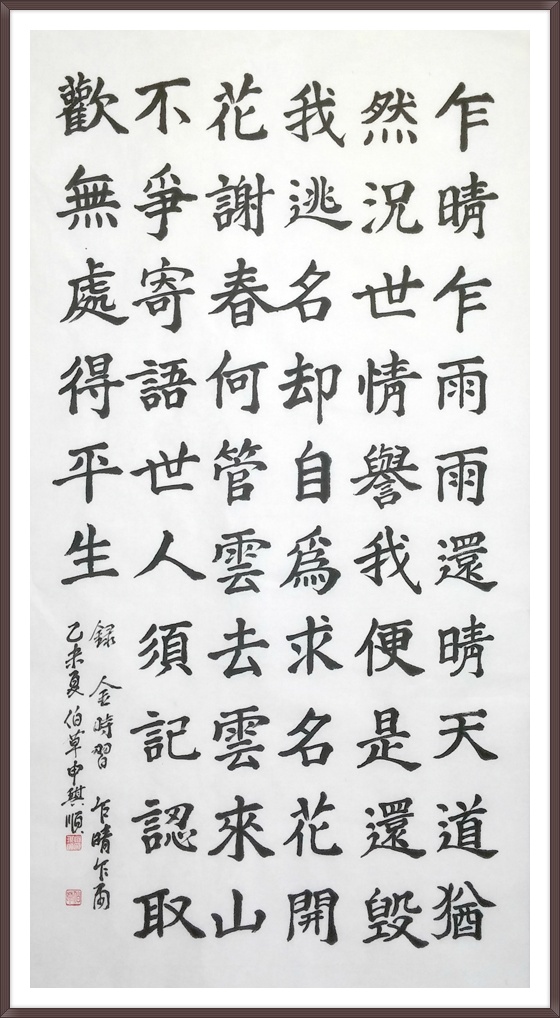 乍晴乍雨雨還晴天道猶
然況世情譽我便是還毀
我逃名却自爲求名花開
花謝春何管雲去雲來山
不爭寄語世人須記認取
歡無處得平生
録 金時習 乍晴乍雨
乙未夏 伯草申